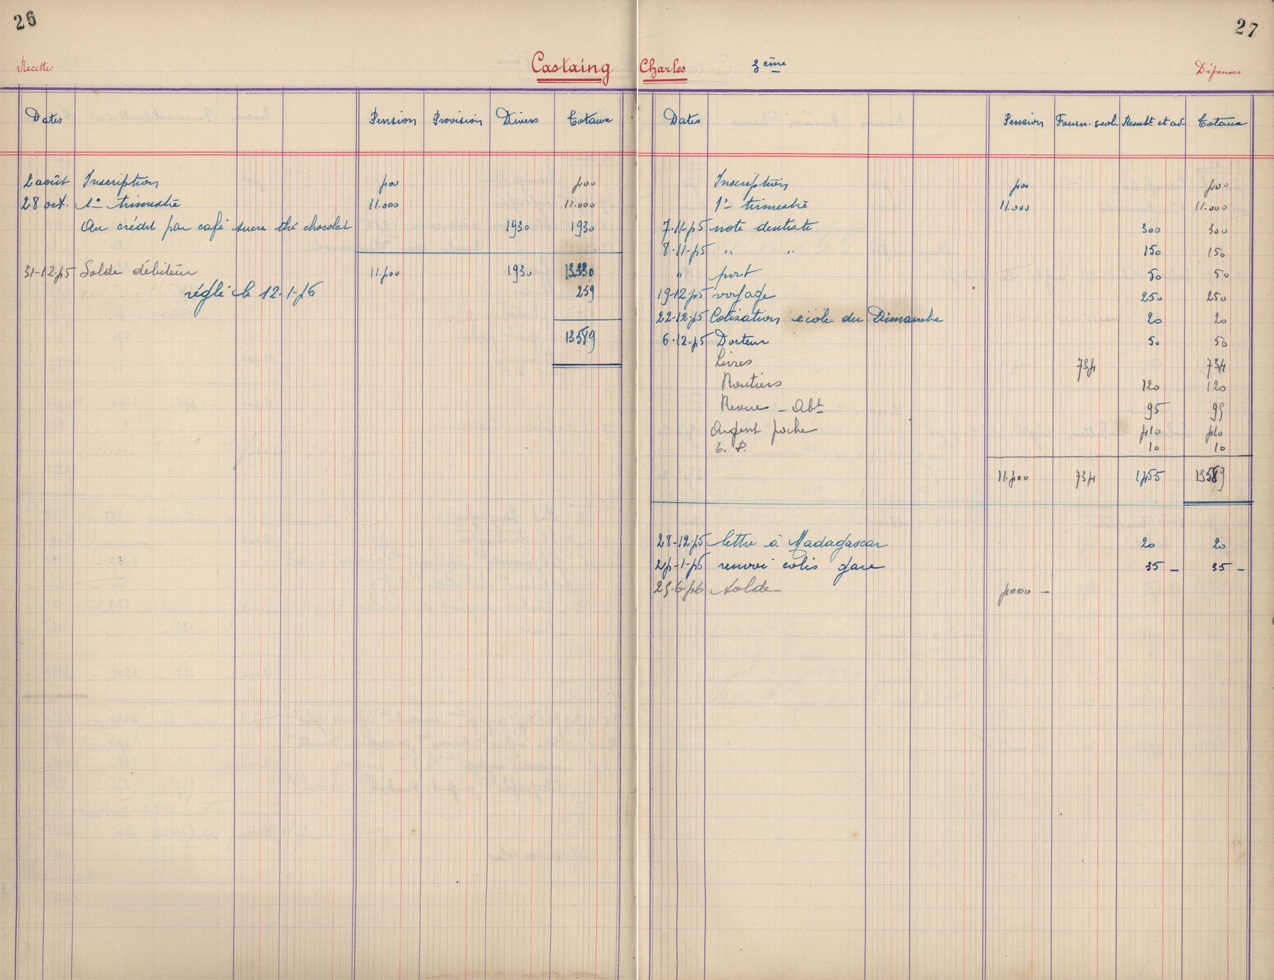 26
27
Recettes
Castaing Charles 3ème
Dépenses
Dates Pension Provision Divers Totaux
2 août Inscription 400 400
28 oct. 1er trimestre 11.000 11.000
Au crédit par café sucre thé chocolat 1930 1930
31-12-45 Solde débiteur 11.400 1930 13330
réglé le 12-1-46 259
13589
Dates Pension Fourn. scol. Remb<sup>t</sup> et av. Totaux
Inscription 400 400
1er trimestre 11.000 11.000
7-11-45 note dentiste 300 300
8-11-45 " " 150 150
" port 50 50
19-12-45 voyage 250 250
22-12-45 Cotisation école du Dimanche 20 20
6-12-45 Docteur 50 50
Livres 734 734
Routiers 120 120
Revue - Abt 95 95
Argent poche 410 410
T. P. 10 10
11.400 734 1455 13589
28-12-45 lettre à Madagascar 20 20
24-1-45 renvoi colis gare 35 - 35 -
6-46 Solde 4000 -